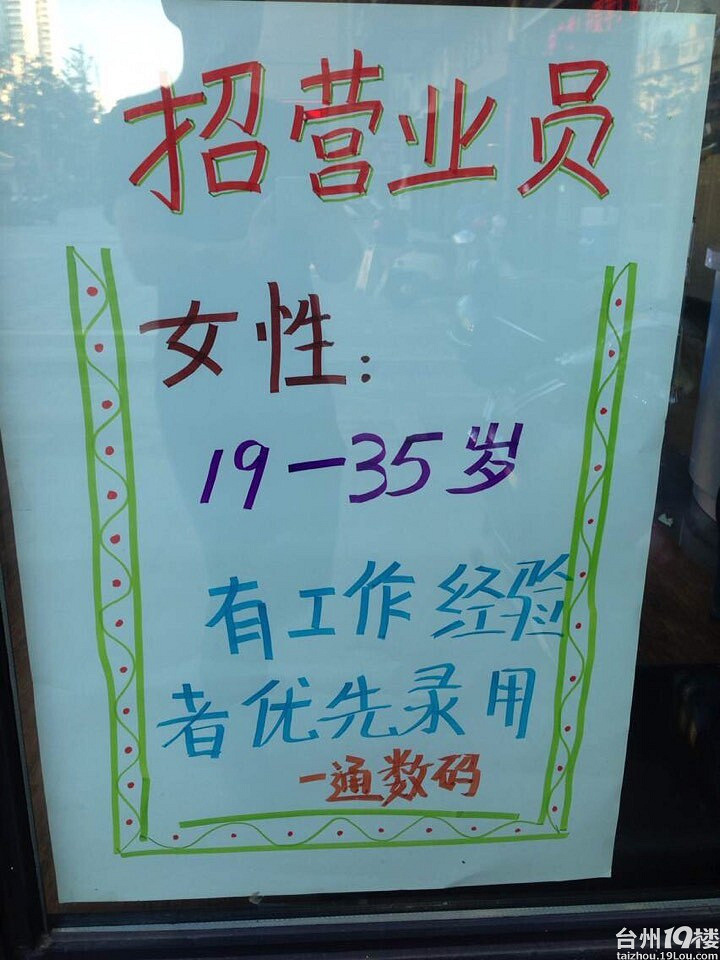 招营业员
女性：
19—35岁
有工作经验
者优先录用
一通数码
台州19楼
taizhou.19lou.com